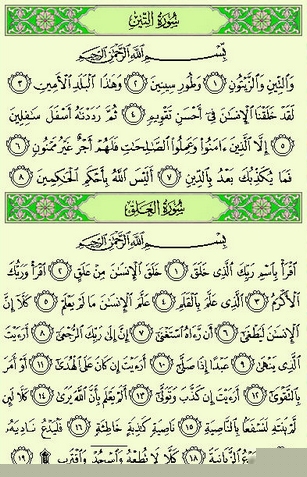 سُورَةُ التِّينِ
بِسْمِ اللَّهِ الرَّحْمَٰنِ الرَّحِيمِ
وَالتِّينِ وَالزَّيْتُونِ ١ وَطُورِ سِينِينَ ٢ وَهَٰذَا الْبَلَدِ الْأَمِينِ ٣
لَقَدْ خَلَقْنَا الْإِنسَٰنَ فِي أَحْسَنِ تَقْوِيمٍ ٤ ثُمَّ رَدَدْنَٰهُ أَسْفَلَ سَٰفِلِينَ
٥ إِلَّا الَّذِينَ ءَامَنُوا وَعَمِلُوا الصَّٰلِحَٰتِ فَلَهُمْ أَجْرٌ غَيْرُ مَمْنُونٍ ٦
فَمَا يُكَذِّبُكَ بَعْدُ بِالدِّينِ ٧ أَلَيْسَ اللَّهُ بِأَحْكَمِ الْحَٰكِمِينَ ٨
سُورَةُ الْعَلَقِ
بِسْمِ اللَّهِ الرَّحْمَٰنِ الرَّحِيمِ
اقْرَأْ بِاسْمِ رَبِّكَ الَّذِي خَلَقَ ١ خَلَقَ الْإِنسَٰنَ مِنْ عَلَقٍ ٢ اقْرَأْ وَرَبُّكَ
الْأَكْرَمُ ٣ الَّذِي عَلَّمَ بِالْقَلَمِ ٤ عَلَّمَ الْإِنسَٰنَ مَا لَمْ يَعْلَمْ ٥ كَلَّا إِنَّ
الْإِنسَٰنَ لَيَطْغَىٰ ٦ أَن رَّءَاهُ اسْتَغْنَىٰ ٧ إِنَّ إِلَىٰ رَبِّكَ الرُّجْعَىٰ ٨ أَرَءَيْتَ
الَّذِي يَنْهَىٰ ٩ عَبْدًا إِذَا صَلَّىٰ ١٠ أَرَءَيْتَ إِن كَانَ عَلَى الْهُدَىٰ ١١ أَوْ أَمَرَ
بِالتَّقْوَىٰ ١٢ أَرَءَيْتَ إِن كَذَّبَ وَتَوَلَّىٰ ١٣ أَلَمْ يَعْلَم بِأَنَّ اللَّهَ يَرَىٰ ١٤ كَلَّا لَئِن
لَّمْ يَنتَهِ لَنَسْفَعًا بِالنَّاصِيَةِ ١٥ نَاصِيَةٍ كَٰذِبَةٍ خَاطِئَةٍ ١٦ فَلْيَدْعُ نَادِيَهُ
الزَّبَانِيَةَ ١٨ كَلَّا لَا تُطِعْهُ وَاسْجُدْ وَاقْتَرِب ١٩